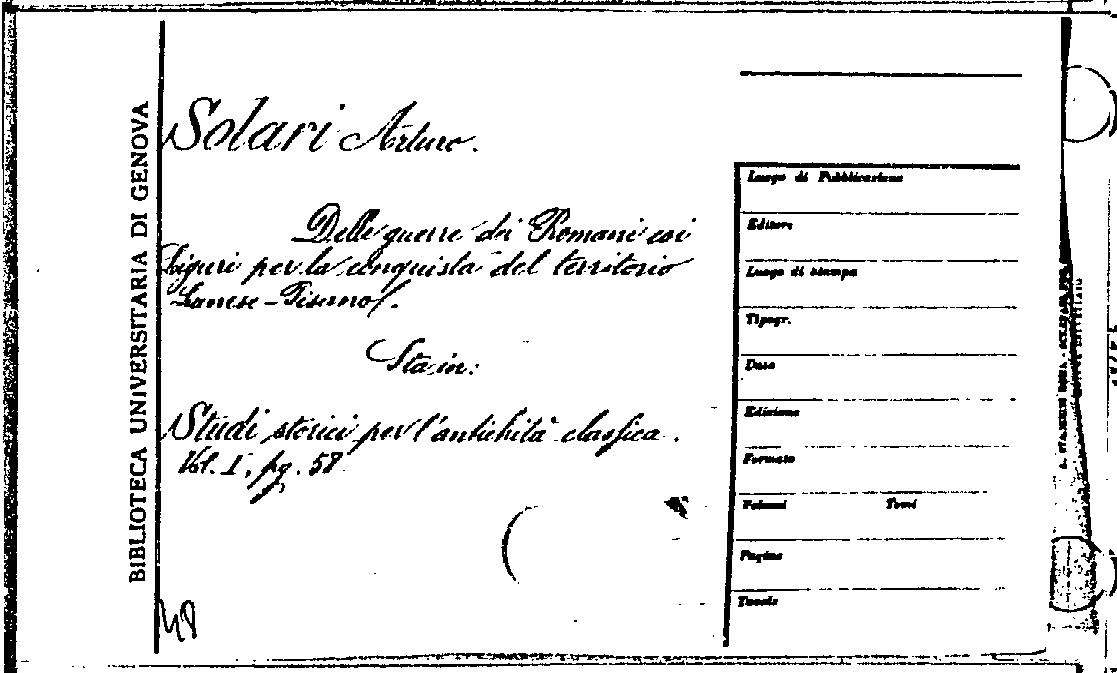 BIBLIOTECA UNIVERSITARIA DI GENOVA
Solari Arturo.
Delle guerre dei Romani coi
Liguri per la conquista del territorio
Lunese-Pisano.
Sta in:
Studi storici per l'antichità classica.
Vol. I, pg. 58
48
Luogo di Pubblicazione
Editore
Luogo di stampa
Tipogr.
Data
Edizione
Formato
Volumi Tomi
Pagine
Tavole